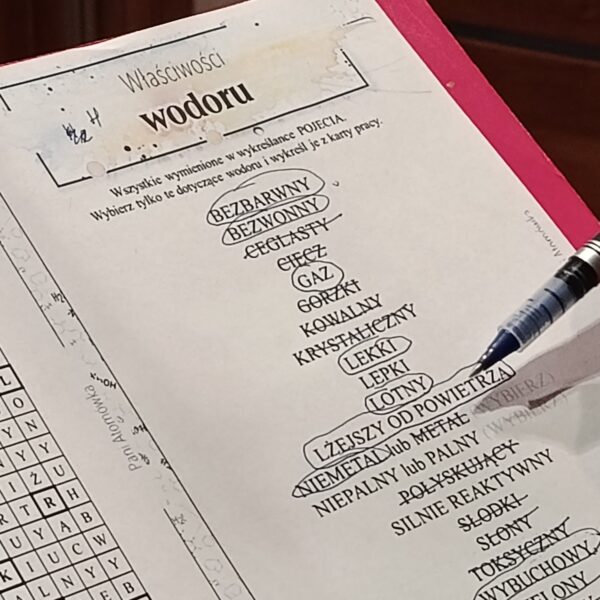 Właściwości
wodoru
H
Wszystkie wymienione w wykreślance POJECIA.
Wybierz tylko te dotyczące wodoru i wykreśl je z karty pracy.
BEZBARWNY
BEZWONNY
CEGLASTY
CIECZ
GAZ
GORZKI
KOWALNY
KRYSTALICZNY
LEKKI
LEPKI
LOTNY
LŻEJSZY OD POWIETRZA
NIEMETAL lub METAL (WYBIERZ)
NIEPALNY lub PALNY (WYBIERZ)
POŁYSKUJĄCY
SILNIE REAKTYWNY
SŁODKI
SŁONY
TOKSYCZNY
WYBUCHOWY
ELONY
Pani Atomówka
H₂
L
O
Y N
Y Y
I Ż U
R T R H
U Y Ą B
K I U C W
A L N Y Y
E B